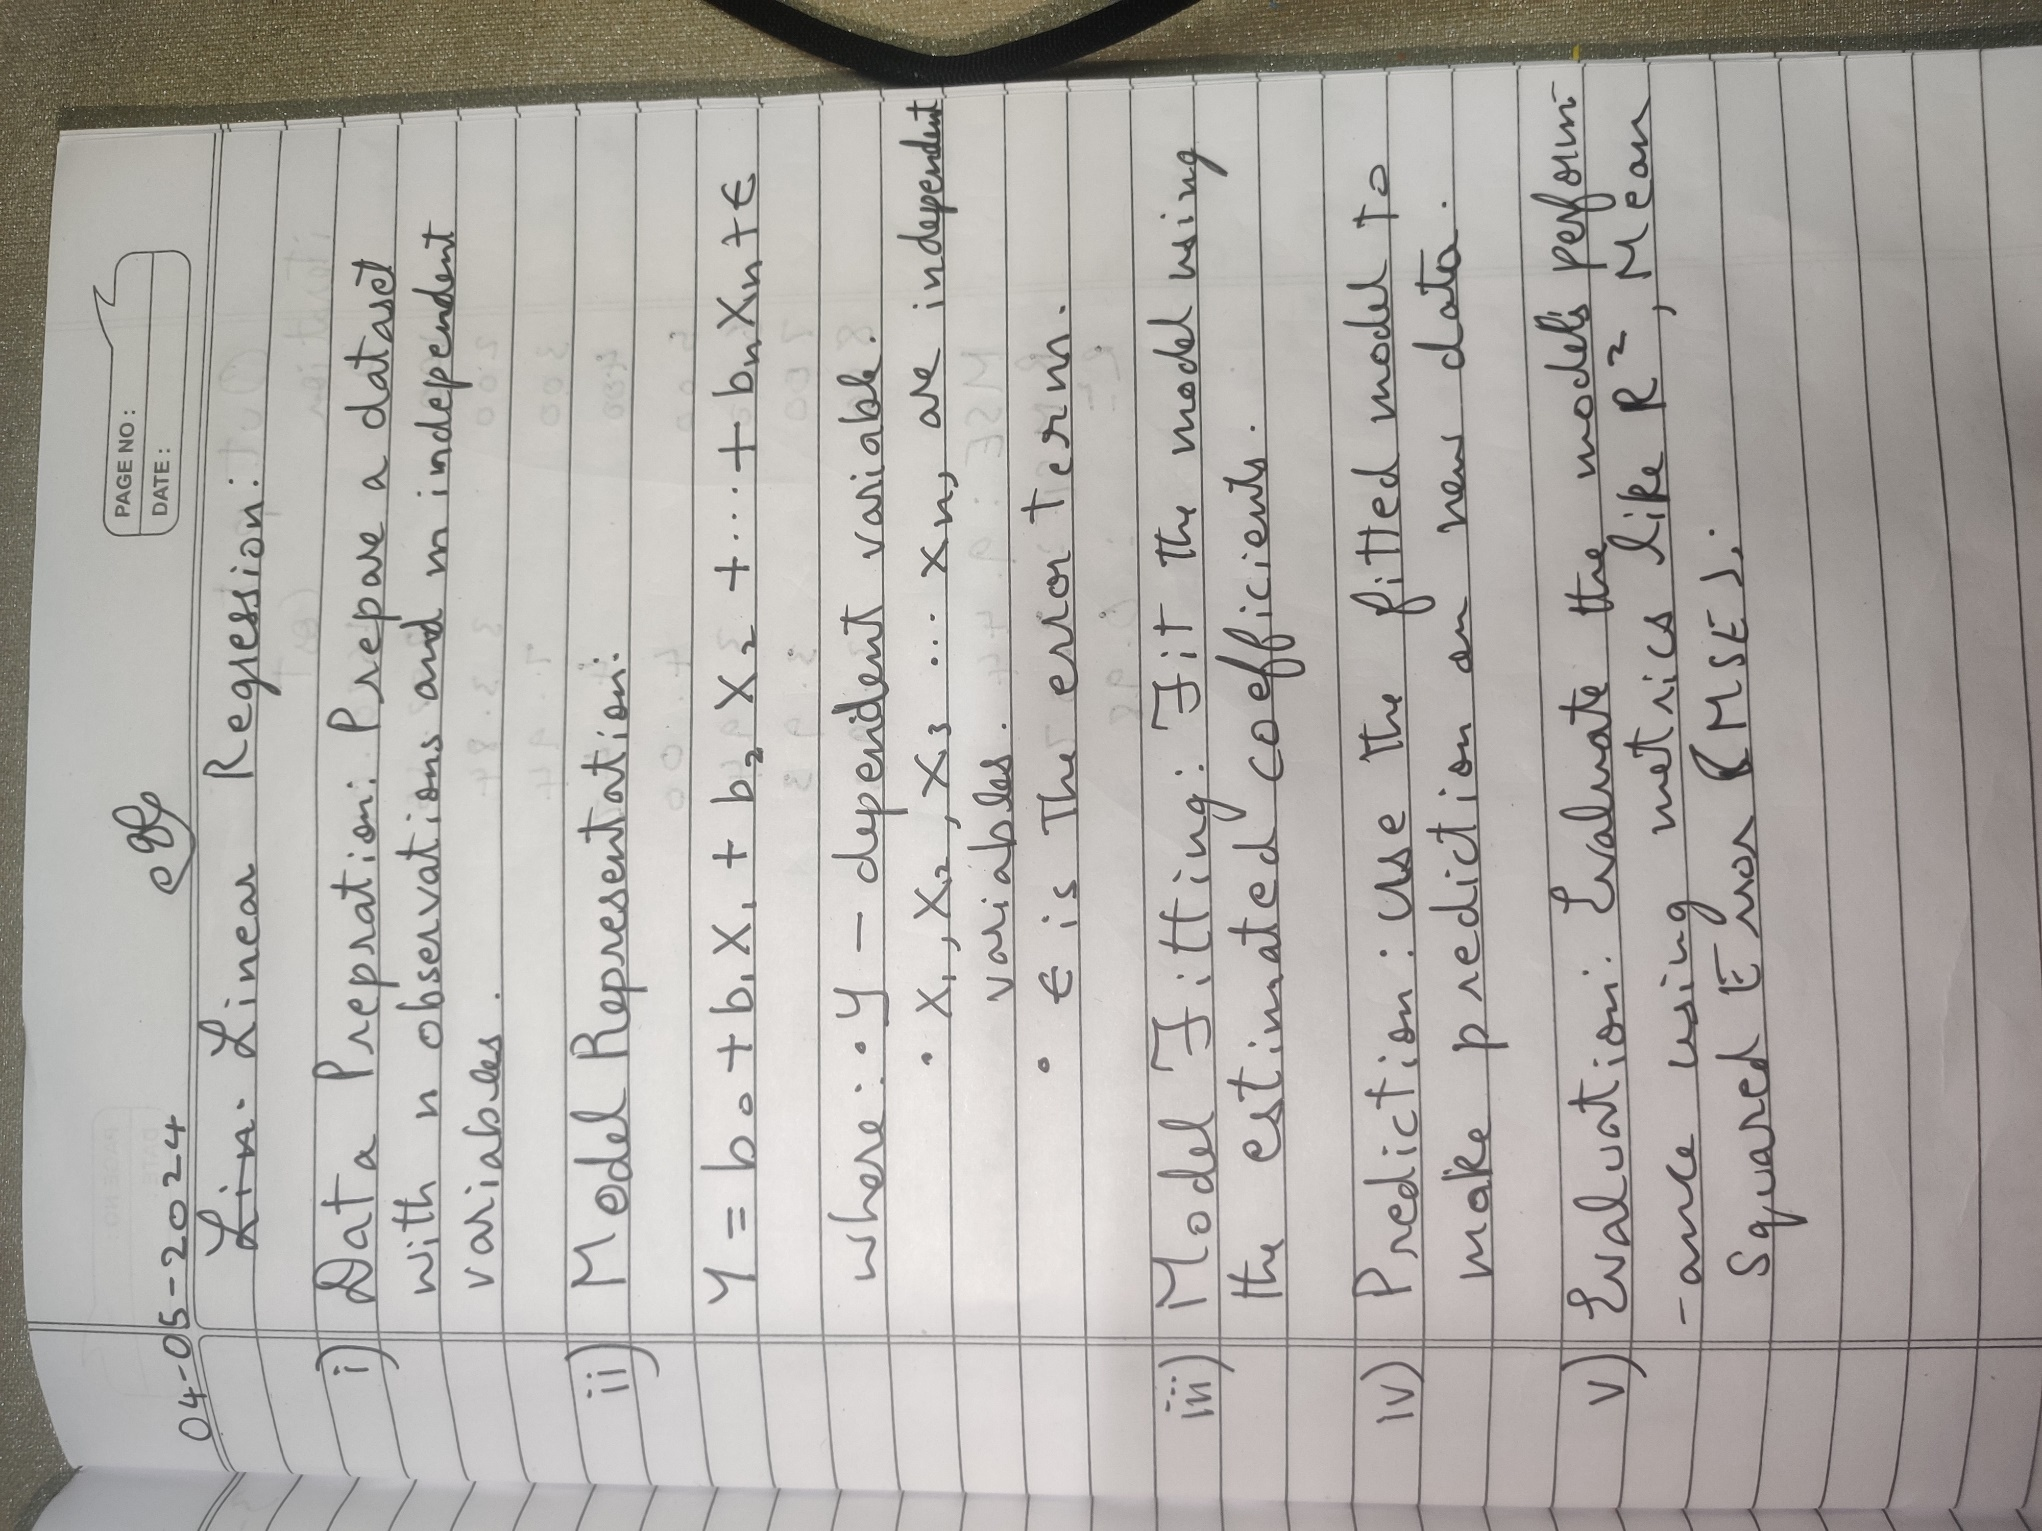 PAGE NO:
DATE:
04-05-2024
Lin. Linear Regression:
i) Data Prepration: Prepare a dataset
with n observations and m independent
variables.
ii) Model Representation:
Y = b0 + b1X1 + b2X2 + .... + bnXn + ε
where: • Y - dependent variable.
• X1, X2, X3 .... Xn, are independent
variables.
• ε is The error term.
iii) Model Fitting: Fit the model using
the estimated coefficients.
iv) Prediction: use the fitted model to
make prediction on new data.
v) Evaluation: Evaluate the model's perform-
-ance using metrics like R², Mean
Squared Error (MSE).